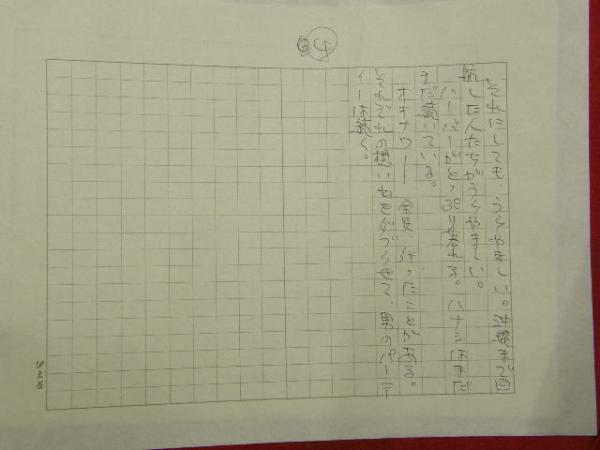 それにしても、うらやましい。沖縄まで回
航した人たちがうらやましい。
ハーバーがとっぷり暮れる。ハナシはまだ
まだ続いている。
オキナワー 全員 行ったことがある。
それぞれの想い出を引づらせて、男のパーテ
ィーは続く。